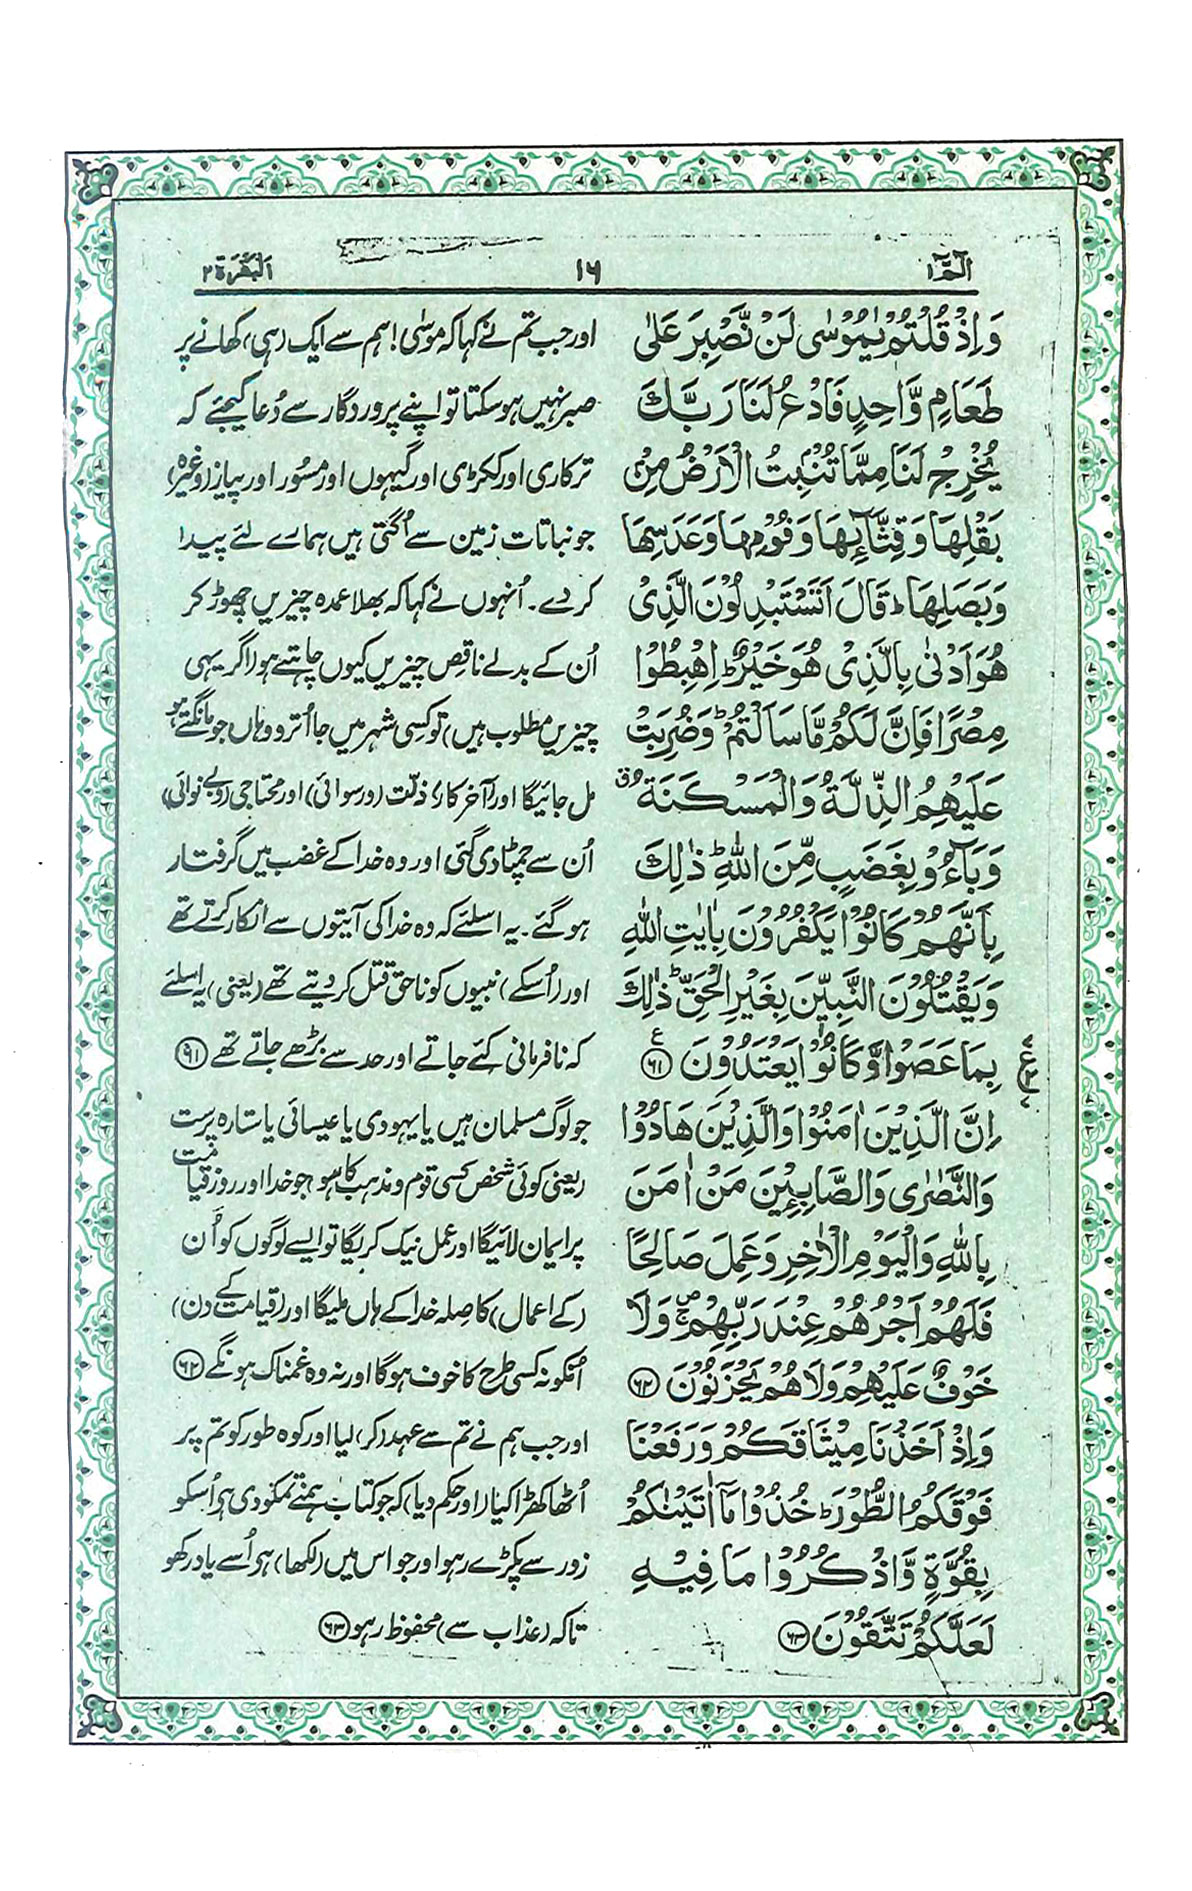 الٓمّٓ ۱ ۱۶ اَلْبَقَرَة ۲
وَاِذْ قُلْتُمْ يٰمُوْسٰى لَنْ نَّصْبِرَ عَلٰى اور جب تم نے کہا کہ موسٰی! ہم سے ایک (ہی) کھانے پر
طَعَامٍ وَّاحِدٍ فَادْعُ لَنَا رَبَّكَ صبر نہیں ہو سکتا تو اپنے پروردگار سے دُعا کیجئے کہ
يُخْرِجْ لَنَا مِمَّا تُنْۢبِتُ الْاَرْضُ مِنْۢ ترکاری اور ککڑی اور گیہوں اور مسُور اور پیاز (وغیرہ)
بَقْلِهَا وَقِثَّآئِهَا وَفُوْمِهَا وَعَدَسِهَا جو نباتات زمین سے اُگتی ہیں ہمارے لئے پیدا
وَبَصَلِهَا ؕ قَالَ اَتَسْتَبْدِلُوْنَ الَّذِىْ کر دے۔ اُنہوں نے کہا کہ بھلا عمدہ چیزیں چھوڑ کر
هُوَ اَدْنٰى بِالَّذِىْ هُوَ خَيْرٌ ؕ اِهْبِطُوْا اُن کے بدلے ناقص چیزیں کیوں چاہتے ہو (اگر یہی
مِصْرًا فَاِنَّ لَكُمْ مَّا سَاَلْتُمْ ؕ وَضُرِبَتْ چیزیں مطلوب ہیں) تو کسی شہر میں جا اُترو وہاں جو مانگتے ہو
عَلَيْهِمُ الذِّلَّةُ وَالْمَسْكَنَةُ ۗ مل جائیگا اور (آخر کار) ذلّت (و رسوائی) اور محتاجی (و بے نوائی)
وَبَآءُوْ بِغَضَبٍ مِّنَ اللّٰهِ ؕ ذٰلِكَ اُن سے چمٹا دی گئی اور وہ خدا کے غضب میں گرفتار
بِاَنَّهُمْ كَانُوْا يَكْفُرُوْنَ بِاٰيٰتِ اللّٰهِ ہو گئے۔ یہ اسلئے کہ وہ خدا کی آیتوں سے انکار کرتے تھے
وَيَقْتُلُوْنَ النَّبِيّٖنَ بِغَيْرِ الْحَقِّ ؕ ذٰلِكَ اور (اُسکے) نبیوں کو ناحق قتل کر دیتے تھے (یعنی) یہ اسلئے
بِمَا عَصَوْا وَّكَانُوْا يَعْتَدُوْنَ ۶۱ ع کہ نافرمانی کئے جاتے اور حد سے بڑھے جاتے تھے ۶۱
اِنَّ الَّذِيْنَ اٰمَنُوْا وَالَّذِيْنَ هَادُوْا جو لوگ مسلمان ہیں یا یہودی یا عیسائی یا ستارہ پرست
وَالنَّصٰرٰى وَالصَّابِـِٕيْنَ مَنْ اٰمَنَ (یعنی کوئی شخص کسی قوم و مذہب کا ہو) جو خدا اور روز قیامت
بِاللّٰهِ وَالْيَوْمِ الْاٰخِرِ وَعَمِلَ صَالِحًا پر ایمان لائیگا اور عمل نیک کریگا تو ایسے لوگوں کو اُن
فَلَهُمْ اَجْرُهُمْ عِنْدَ رَبِّهِمْ ۚ وَلَا (کے اعمال) کا صلہ خدا کے ہاں ملیگا اور (قیامت کے دن)
خَوْفٌ عَلَيْهِمْ وَلَا هُمْ يَحْزَنُوْنَ ۶۲ اُنکو نہ کسی طرح کا خوف ہوگا اور نہ وہ غمناک ہونگے ۶۲
وَاِذْ اَخَذْنَا مِيْثَاقَكُمْ وَرَفَعْنَا اور جب ہم نے تم سے عہد (کر) لیا اور کوہ طور کو تم پر
فَوْقَكُمُ الطُّوْرَ ؕ خُذُوْا مَآ اٰتَيْنٰكُمْ اُٹھا کھڑا کیا (اور حکم دیا) کہ جو کتاب ہمنے تمکو دی ہے اُسکو
بِقُوَّةٍ وَّاذْكُرُوْا مَا فِيْهِ زور سے پکڑے رہو اور جو اس میں (لکھا) ہے اُسے یاد رکھو
لَعَلَّكُمْ تَتَّقُوْنَ ۶۳ تاکہ (عذاب سے) محفوظ رہو ۶۳